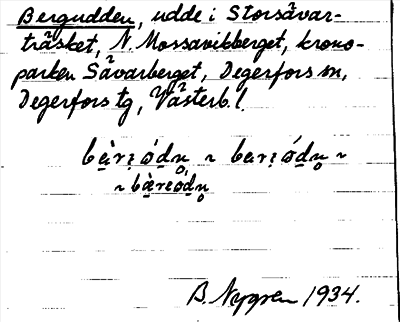 Bergudden, udde i Storsävar-
träsket, N. Mossavikberget, krono-
parken Sävarberget, Degerfors sn,
Degerfors tg, Västerb. l.
B. Nygren 1934.